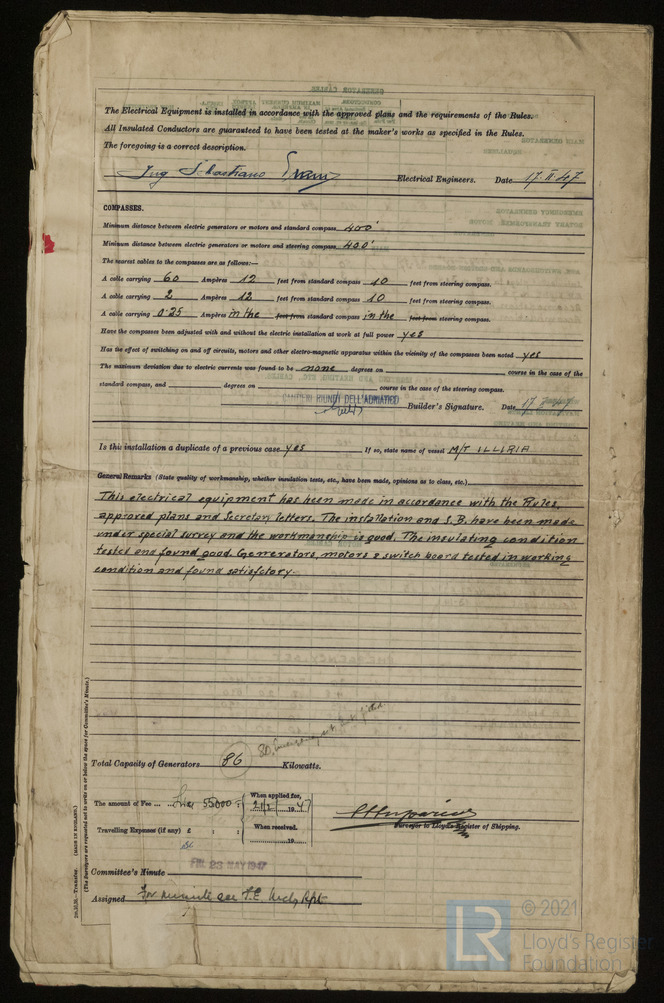 The Electrical Equipment is installed in accordance with the approved plans and the requirements of the Rules.
All Insulated Conductors are guaranteed to have been tested at the maker's works as specified in the Rules.
The foregoing is a correct description.
Ing Sebastiano Electrical Engineers. Date 17.II.47
COMPASSES.
Minimum distance between electric generators or motors and standard compass 400'
Minimum distance between electric generators or motors and steering compass 400'
The nearest cables to the compasses are as follows:—
A cable carrying 60 Ampères 12 feet from standard compass 10 feet from steering compass.
A cable carrying 2 Ampères 12 feet from standard compass 10 feet from steering compass.
A cable carrying 0.25 Ampères in the feet from standard compass in the feet from steering compass.
Have the compasses been adjusted with and without the electric installation at work at full power yes
Has the effect of switching on and off circuits, motors and other electro-magnetic apparatus within the vicinity of the compasses been noted yes
The maximum deviation due to electric currents was found to be none degrees on course in the case of the
standard compass, and degrees on course in the case of the steering compass.
CANTIERI RIUNITI DELL'ADRIATICO
Builder's Signature. Date 17
Is this installation a duplicate of a previous case yes If so, state name of vessel M/T ILLIRIA
General Remarks (State quality of workmanship, whether insulation tests, etc., have been made, opinions as to class, etc.)
This electrical equipment has been made in accordance with the Rules,
approved plans and Secretary letters. The installation and S.B. have been made
under special survey and the workmanship is good. The insulating condition
tested and found good. Generators, motors & switch board tested in working
condition and found satisfctory.
Total Capacity of Generators 86 Kilowatts.
The amount of Fee ... Lire 55000 = When applied for, 21/2/ 1947
Travelling Expenses (if any) £ : : When received. 19
Surveyor to Lloyd's Register of Shipping.
FRI. 23 MAY 1947
Committee's Minute
Assigned For minute see F.E. Mchy Rpt
2m.11.36.—Transfer. (MADE IN ENGLAND.)
(The Surveyors are requested not to write on or below the space for Committee's Minute.)
LR © 2021
Lloyd's Register
Foundation